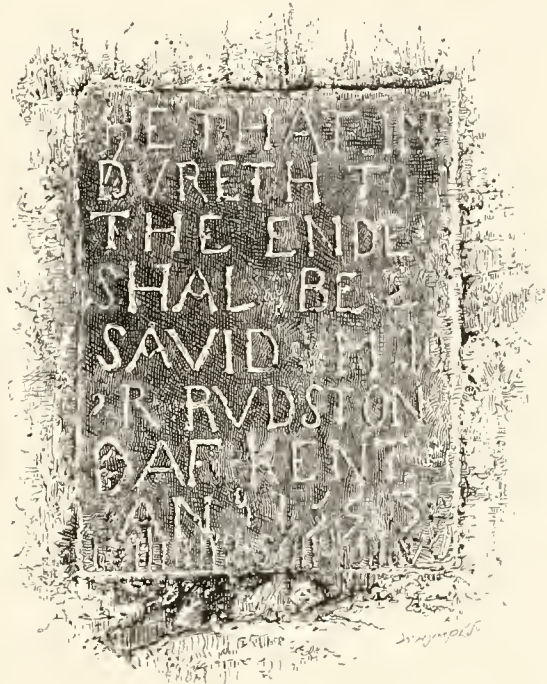 HE THAT IN
DVRETH TO
THE ENDE
SHAL BE
SAVID M
R RVDSTON
DAF KENT
ANº 1553